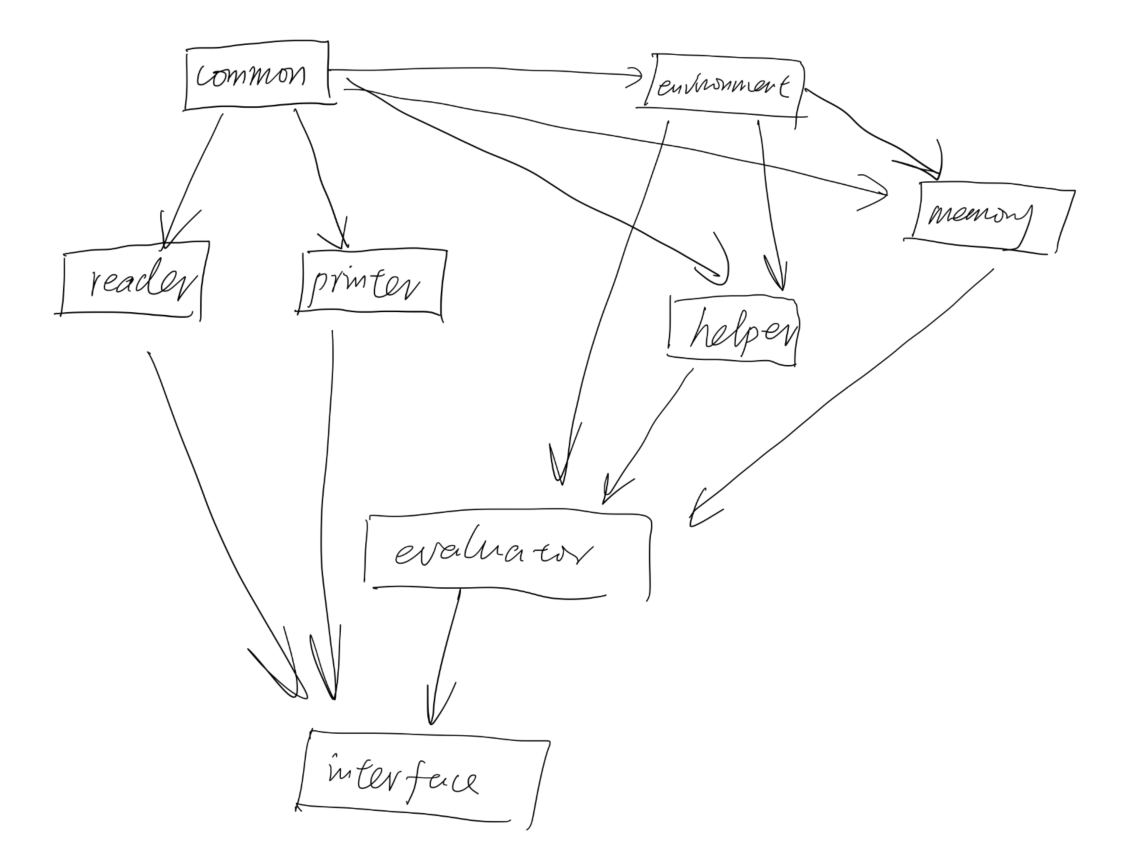 common
environment
memory
reader
printer
helper
evaluator
interface